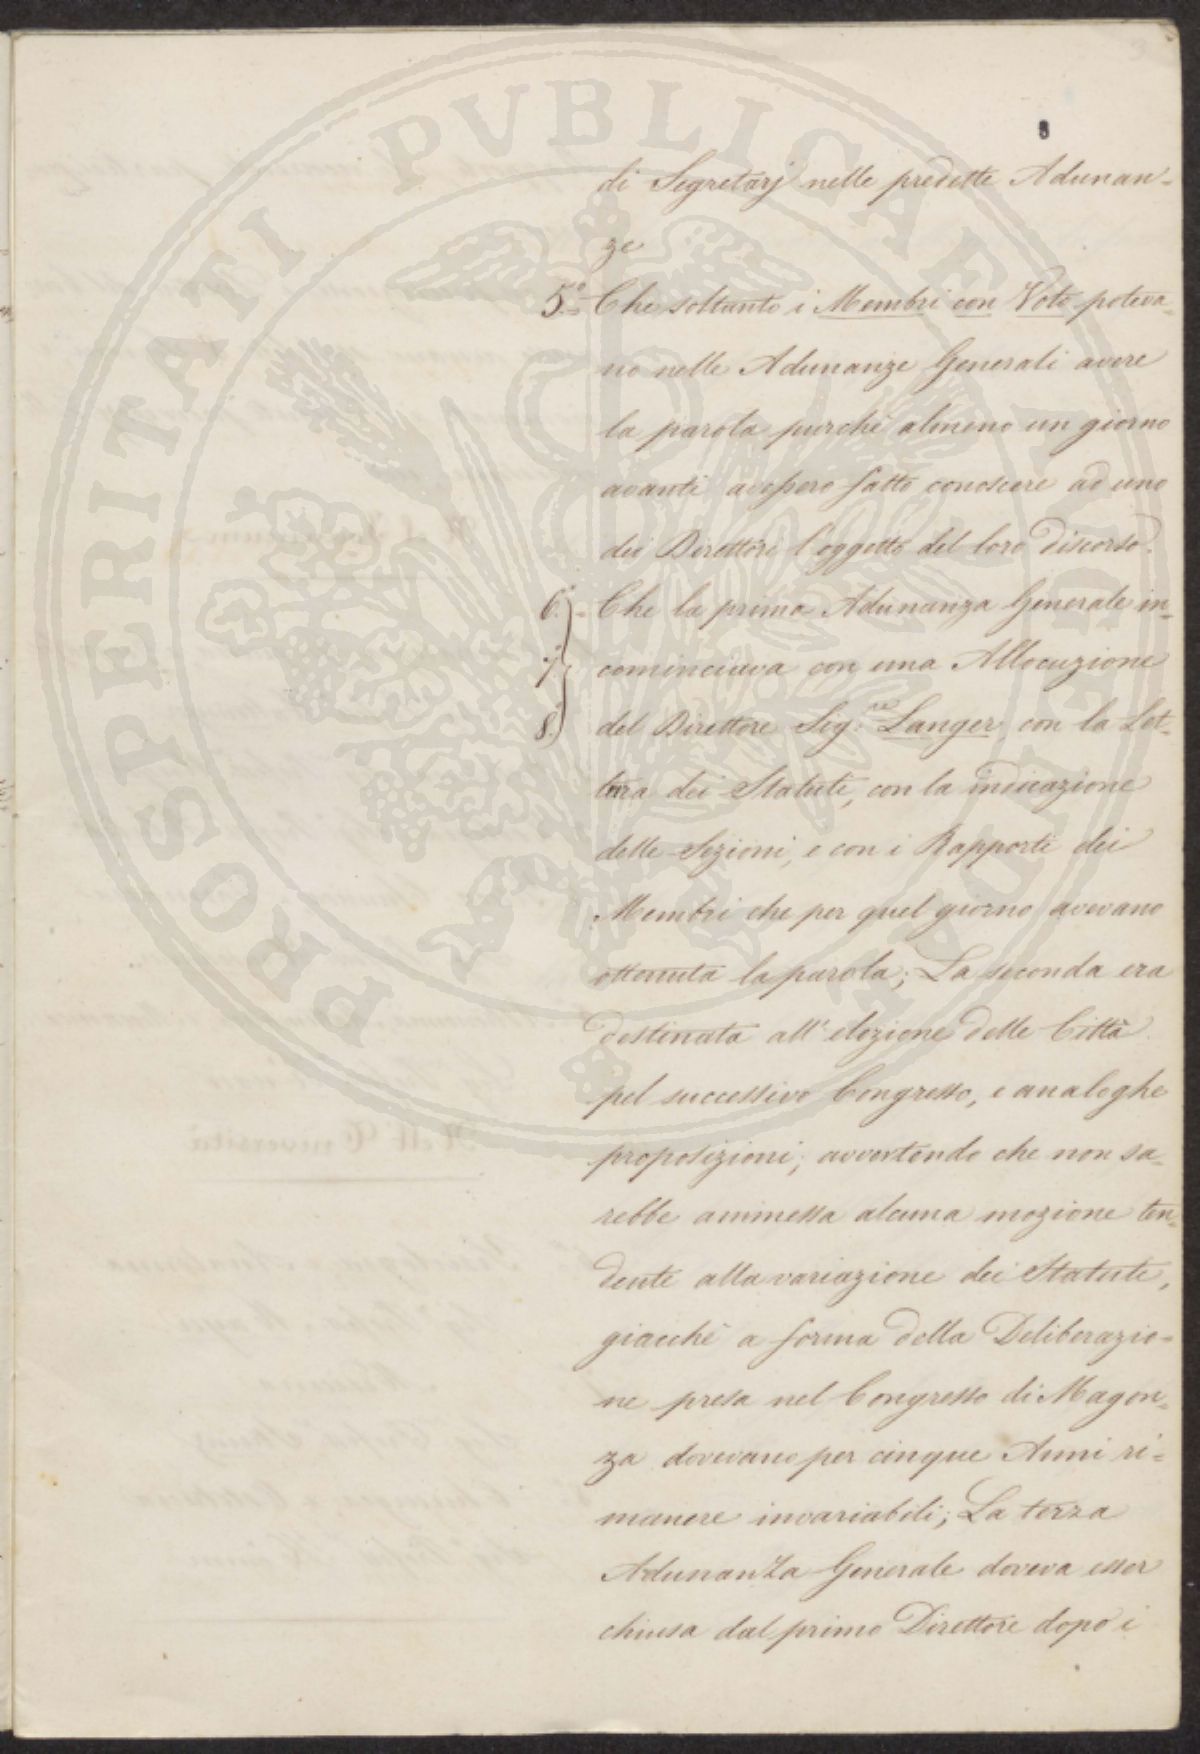 PROSPERITATI PVBLICAE AVGENDAE
3
di Segretarj nelle predette Adunan-
ze
5.° Che soltanto i Membri con Voto poteva-
no nelle Adunanze Generali avere
la parola purchè almeno un giorno
avanti avessero fatto conoscere ad uno
dei Direttori l'oggetto del loro discorso.
6.° Che la prima Adunanza Generale in-
7.° cominciava con una Allocuzione
8.° del Direttore Sig.re Langer con la Let-
tura dei Statuti, con la indicazione
delle Sezioni, e con i Rapporti dei
Membri che per quel giorno avevano
ottenuta la parola; La seconda era
destinata all'elezione delle Città
pel successivo Congresso, e analoghe
proposizioni; avvertendo che non sa-
rebbe ammessa alcuna mozione ten-
dente alla variazione dei Statuti,
giacchè a forma della Deliberazio-
ne presa nel Congresso di Magon-
za dovevano per cinque Anni ri-
manere invariabili; La terza
Adunanza Generale doveva esser
chiusa dal primo Direttore dopo i